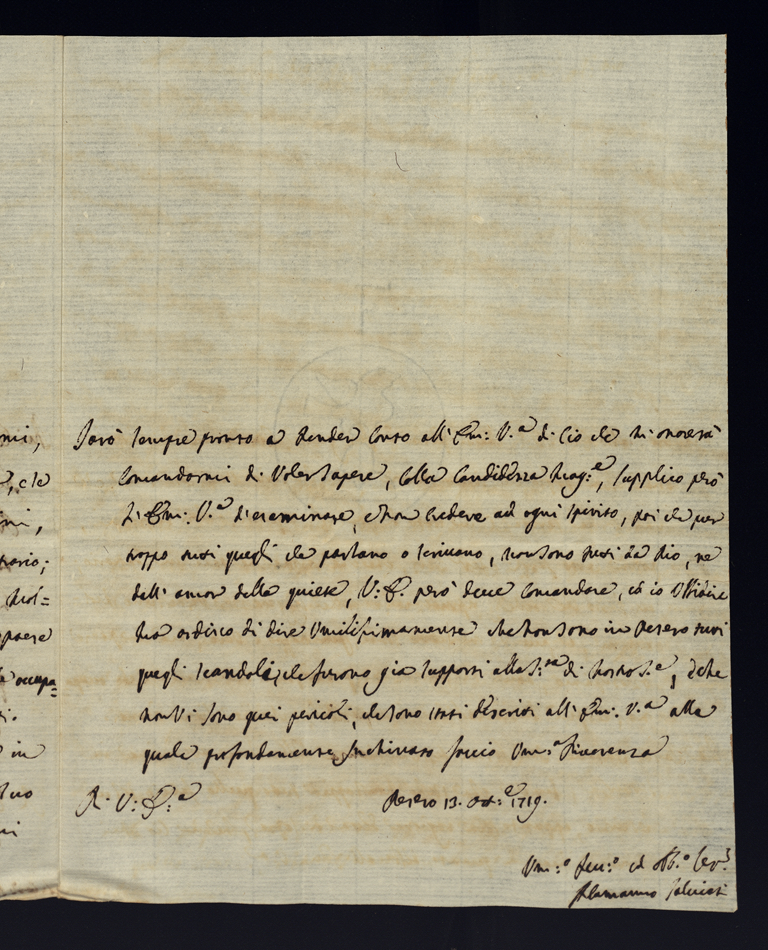 omi,
, che
ni,
trario;
Mol=
paese
occupa=
in
Sarò sempre pronto a render conto all' Em: V.a di ciò che mi onorerà
comandarmi di voler sapere, colla candidezza mag:e, supplico però
l' Em: V.a d'esaminare, e non credere ad ogni spirito, poi che pur
troppo tutti quegli che parlano o scrivano, non sono tutti da Dio, ne
dall' amor della quiete, V: E. però deve comandare, ed io obbidire
ma ardisco di dire umilissimamente che non sono in Pesero tutti
quegli scandoli, che furono già supposti alla S.tà di Nostro S.e, e che
non vi sono quei pericoli, che sono stati descritti all' Em: V.a alla
quale profondamente inchinato faccio um:a riverenza
Di V: E:a
Pesero 13. Ott:e 1719.
Um:o Deu:o ed obb:o Ser:
Alamanno Salviati